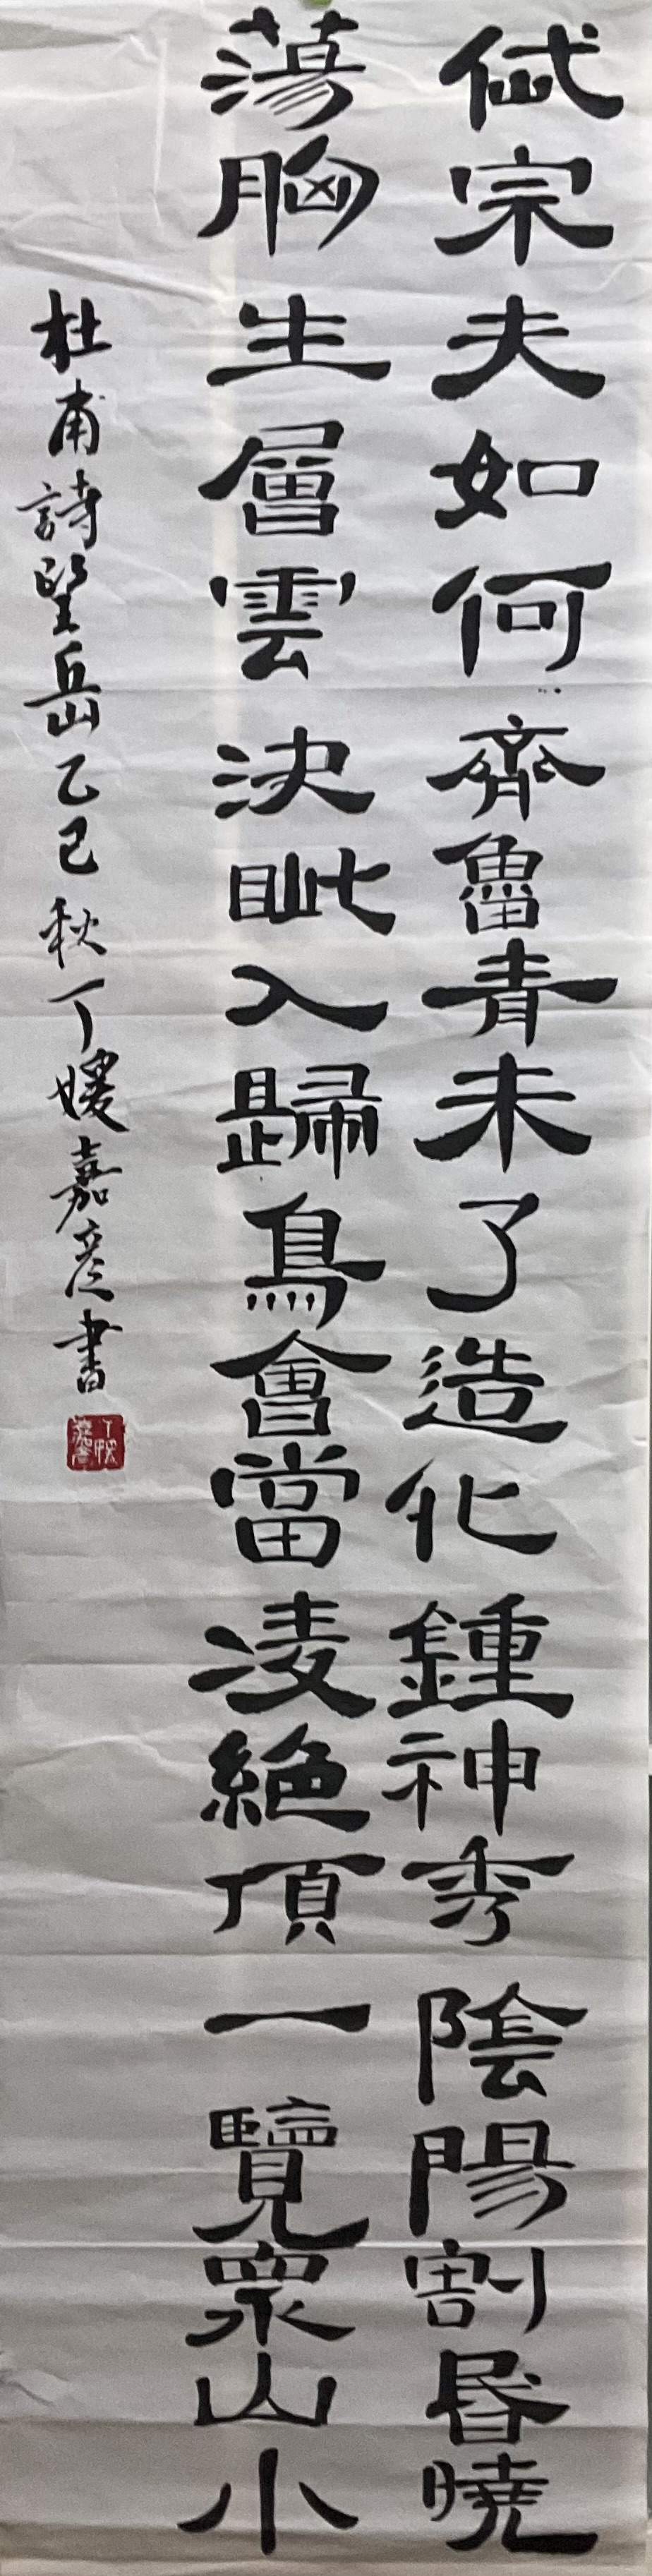 岱宗夫如何齊魯青未了造化鍾神秀陰陽割昬曉
蕩胸生層雲決眦入歸鳥會當凌絕頂一覽眾山小
杜甫詩望岳乙巳秋丁媛嘉彦書